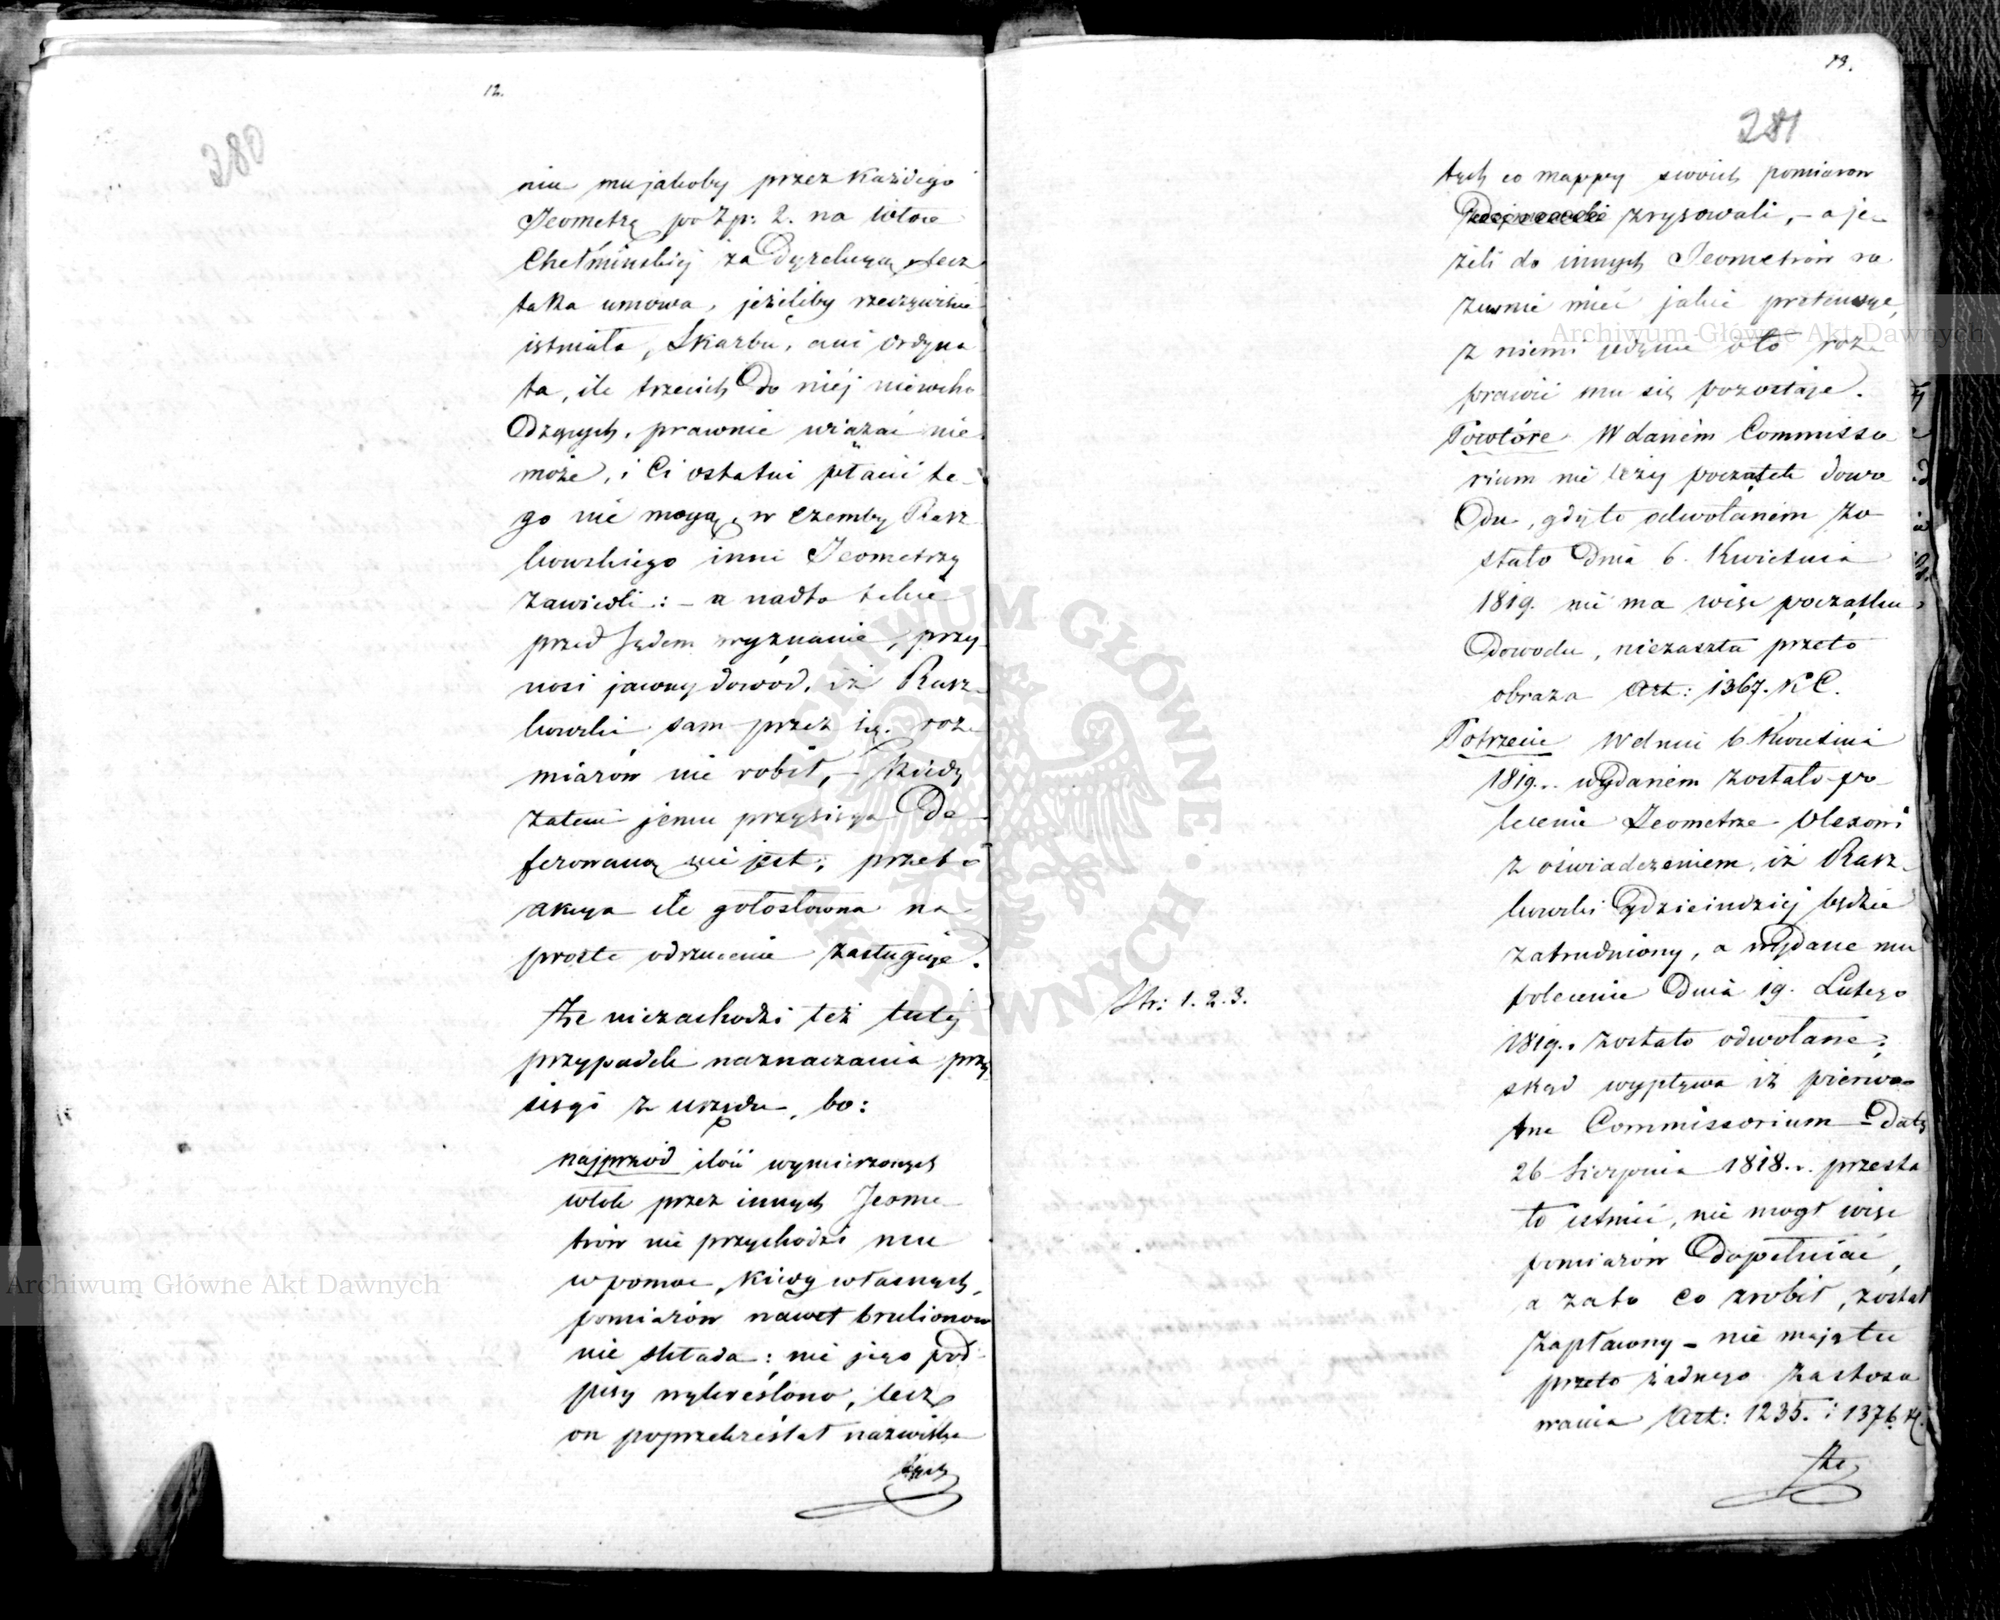 12.
280
niu mu jakoby przez każdego
Jeometrę po Zp: 2. na włóce
Chełmińskiéj za Dyrekcyą, lecz
taka umowa, jeżeliby rzeczywiście
istniała, Skarbu, ani ordyna
ta, ile trzecich Do niéj niewcho
Dzących, prawnie wiązać nie
może, i Ci ostatni płacić te-
go nie mogą, w czemby Rasz
kowskiego inni Jeometrzy
zawiedli: – a nadto takie
przed Sądem wyznanie, przy-
nosi jawny dowód, iż Rasz-
kowski sam przez się roz-
miarów nie robił, – Kiedy
zatem jemu przysięga De-
ferowaną nie jest; przeto
akcya ile gołosłowna na
proste odrzucenie zasługuje.
Że niezachodzi też tutéj
przypadek naznaczania przy
sięgi z urzędu, bo:
najprzód ilość wymierzonych
włók przez innych Jeome-
trów nie przychodzi mu
w pomoc, Kiedy własnych
pomiarów nawet brulionow
nie składa; nie jego pod-
pisy wykreślono, lecz
on poprzekréślał nazwiska
tych
13.
281
tych co mappy swoich pomiarow
zrysowali, – a je-
żeli do innych Jeometrów ro
zumie mieć jakie pretensye,
z niemi jedynie o to roz-
prawić mu się pozostaje.
Powtóre W daném Commisso
rium nie leży początek dowo
Du, gdy to odwołaném zo-
stało Dnia 6. Kwietnia
1819. nie ma więc początku
Dowodu, niezaszła przeto
obraza Art: 1367. KC.
Potrzecie W dniu 6 Kwietnia
1819.. wydaném zostało po-
lecenie Jeometrze Olexowi
z oświadczeniem, iż Rasz-
kowski gdzieindziéj będzie
zatrudniony, a wydane mu
polecenie Dnia 19. Lutego
1819.. zostało odwołane;
Str: 1. 2. 3.
skąd wypływa iż pierwo-
tne Commissorium z Daty
26 Sierpnia 1818.. przesta
ło istnieć, nie mógł więc
pomiarów Dopełniać,
a za to co zrobił, został
zapłacony – nie mają tu
przeto żadnego zastoso
wania Art: 1235. i 1376 K
Że
Archiwum Główne Akt Dawnych
Archiwum Główne Akt Dawnych
ARCHIWUM GŁÓWNE AKT DAWNYCH